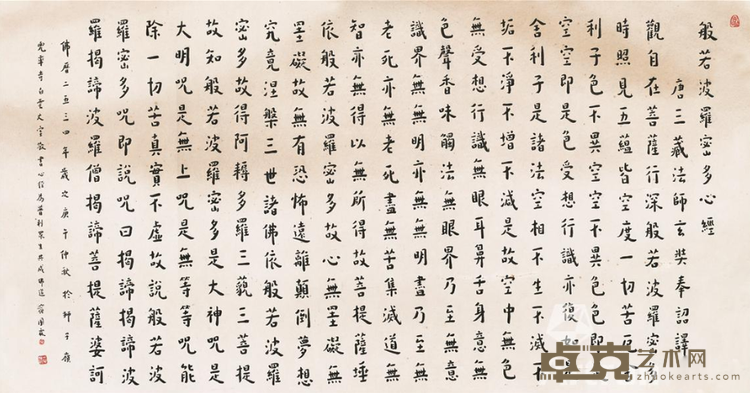 般若波羅蜜多心經
唐三藏法師玄奘奉詔譯
觀自在菩薩行深般若波羅蜜多
時照見五蘊皆空度一切苦厄
利子色不異空空不異色色即
空空即是色受想行識亦復如
舍利子是諸法空相不生不滅不
垢不淨不增不減是故空中無色
無受想行識無眼耳鼻舌身意無
色聲香味觸法無眼界乃至無意
識界無無明亦無無明盡乃至無
老死亦無老死盡無苦集滅道無
智亦無得以無所得故菩提薩埵
依般若波羅蜜多故心無罣礙無
罣礙故無有恐怖遠離顛倒夢想
究竟涅槃三世諸佛依般若波羅
蜜多故得阿耨多羅三藐三菩提
故知般若波羅蜜多是大神咒是
大明咒是無上咒是無等等咒能
除一切苦真實不虛故說般若波
羅蜜多咒即說咒曰揭諦揭諦波
羅揭諦波羅僧揭諦菩提薩婆訶
佛曆二五三四年歲次庚午仲秋於獅子嶺
敬書心經為普利眾生共成佛道
卓克艺术网
zhuokearts.com